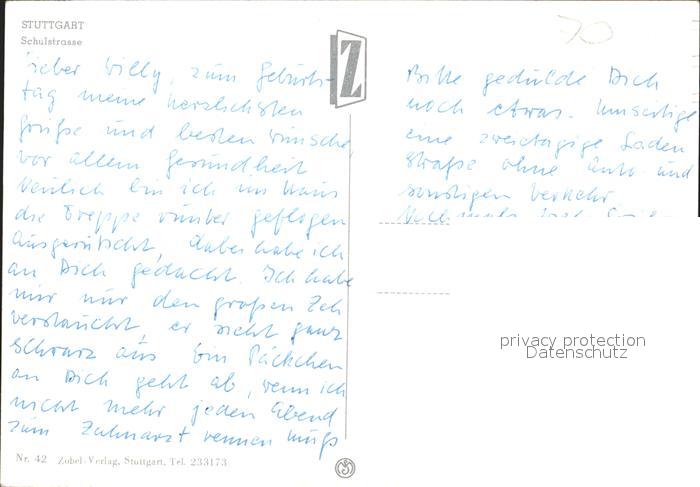 STUTTGART
Schulstrasse
70
Lieber Willy, zum Geburts-
tag meine herzlichsten
Grüße und besten Wünsche,
vor allem Gesundheit
Neulich bin ich im Haus
die Treppe runter geflogen
Ausgerutscht, dabei habe ich
an Dich gedacht. Ich habe
mir nur den großen Zeh
verstaucht, er sieht ganz
schwarz aus. Ein Päckchen
an Dich geht ab, wenn ich
nicht mehr jeden Abend
zum Zahnarzt rennen muß
Z
Nr. 42 Zobel-Verlag, Stuttgart, Tel. 233173
Bitte gedulde Dich
noch etwas. Umseitige
eine zweistagige Laden
straße ohne Auto- und
sonstigen Verkehr
Nochmals
privacy protection
Datenschutz